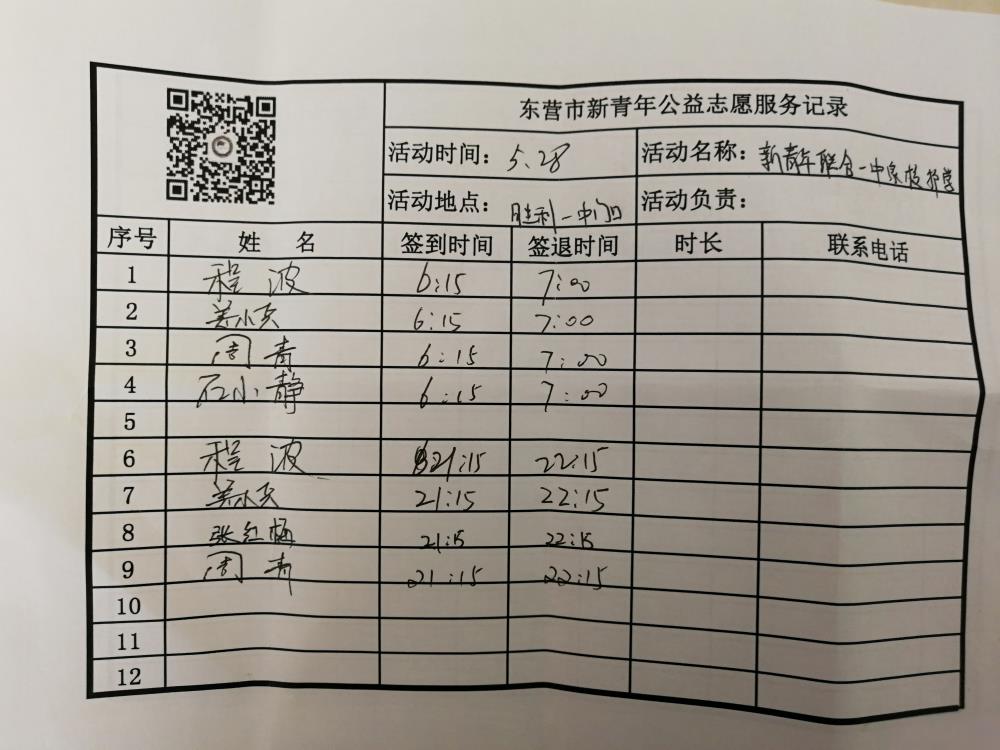 东营市新青年公益志愿服务记录
活动时间：5.28 活动名称：新青年联合一中家校护学
活动地点：胜利一中门口 活动负责：
序号 姓名 签到时间 签退时间 时长 联系电话
1 程波 6:15 7:00
2 6:15 7:00
3 周青 6:15 7:00
4 石小静 6:15 7:00
5
6 程波 21:15 22:15
7 21:15 22:15
8 张红梅 21:15 22:15
9 周青 21:15 22:15
10
11
12